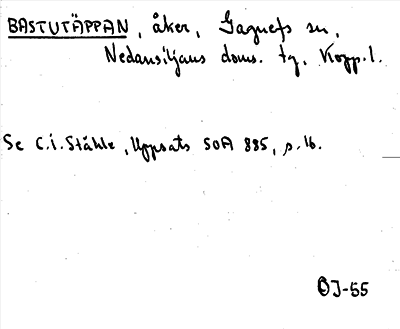 BASTUTÄPPAN, åker, Gagnefs sn,
Nedansiljans doms. tg, Kopp. l.
Se C.I. Ståhle, Uppsats SOA 885, s. 16.
OJ-55